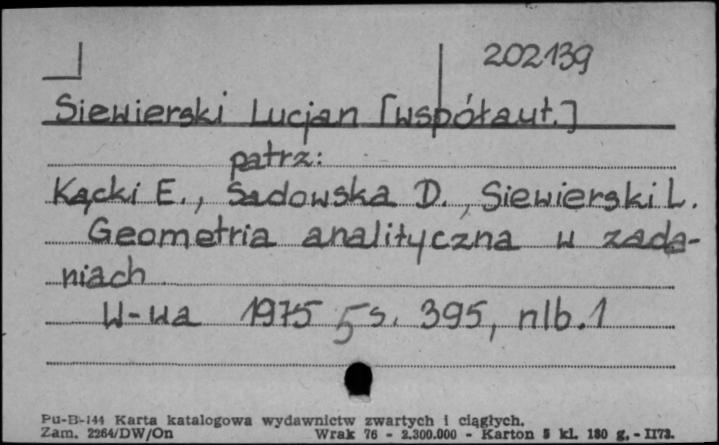 202139
Siewierski Lucjan [współaut.]
patrz:
Kącki E., Sadowska D., Siewierski L.
Geometria analityczna w zada-
niach
W-wa 1975 5 s. 395, nlb. 1
Pu-B-144 Karta katalogowa wydawnictw zwartych i ciągłych.
Zam. 2264/DW/On Wrak 76 - 2.300.000 - Karton 5 kl. 180 g. - II73.